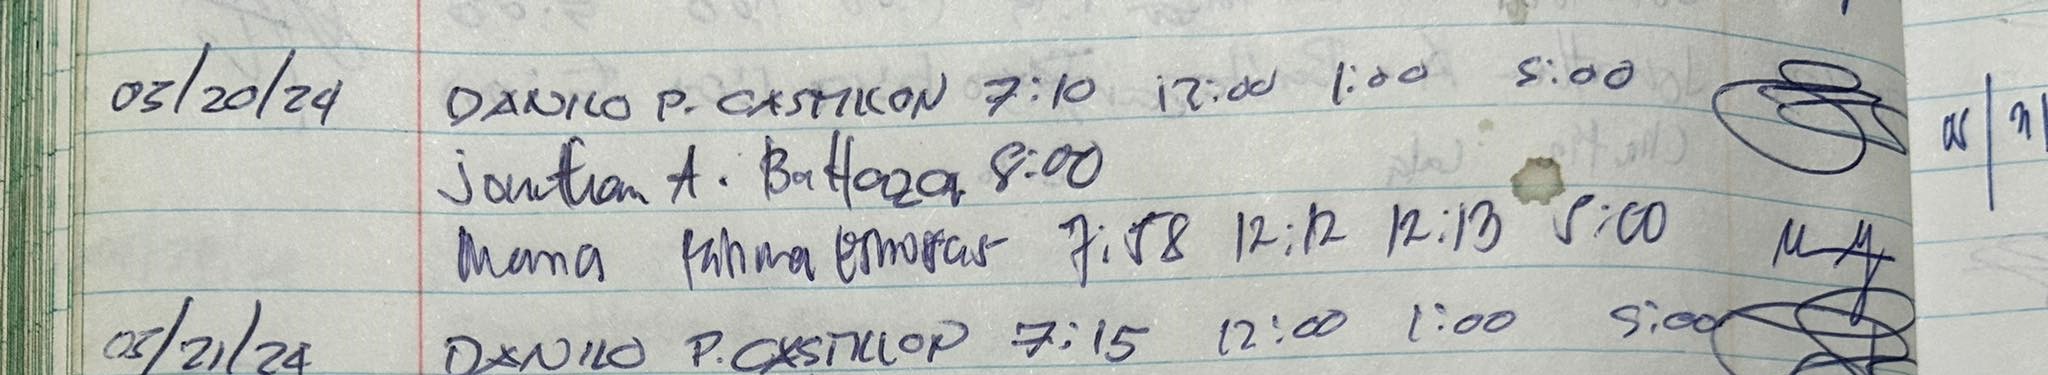 05/20/24 DANILO P. CASTILLON 7:10 12:00 1:00 5:00
Jonathan A. Baltazar 8:00
Maria Fatima 7:58 12:12 12:13 5:00
05/21/24 DANILO P. CASTILLON 7:15 12:00 1:00 5:00